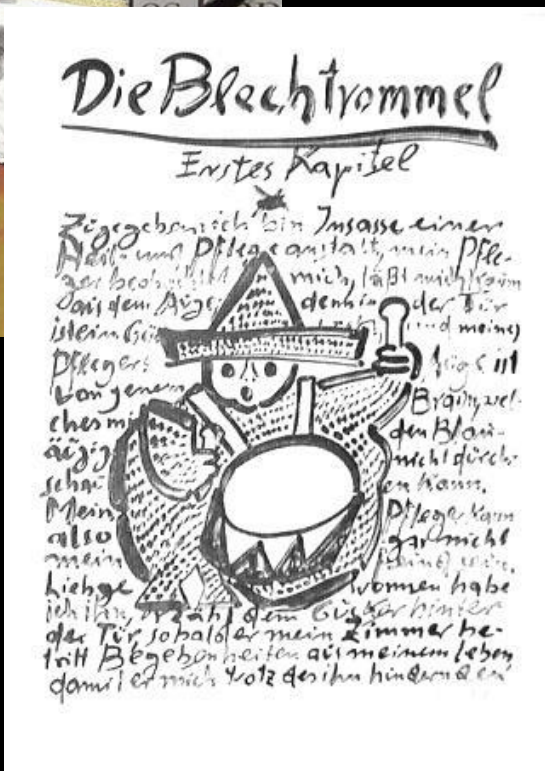 Die Blechtrommel
Erstes Kapitel
Zugegeben ich bin Insasse einer
Heil- und Pflegeanstalt, mein Pfle-
ger beobachtet mich, läßt mich kaum
aus dem Auge denn in der Tür
ist ein und meines
Pflegers Auge ist
von jenem Braun, wel-
ches mi den Blau-
äugig nicht durch-
schau en kann.
Mein Pfleger kann
also gar nicht
mein
Liebge wonnen habe
ich ihn, erzähl dem Gucker hinter
der Tür sobald er mein Zimmer be-
tritt Begebenheiten aus meinem Leben
damit er mich trotz des ihn hindernden